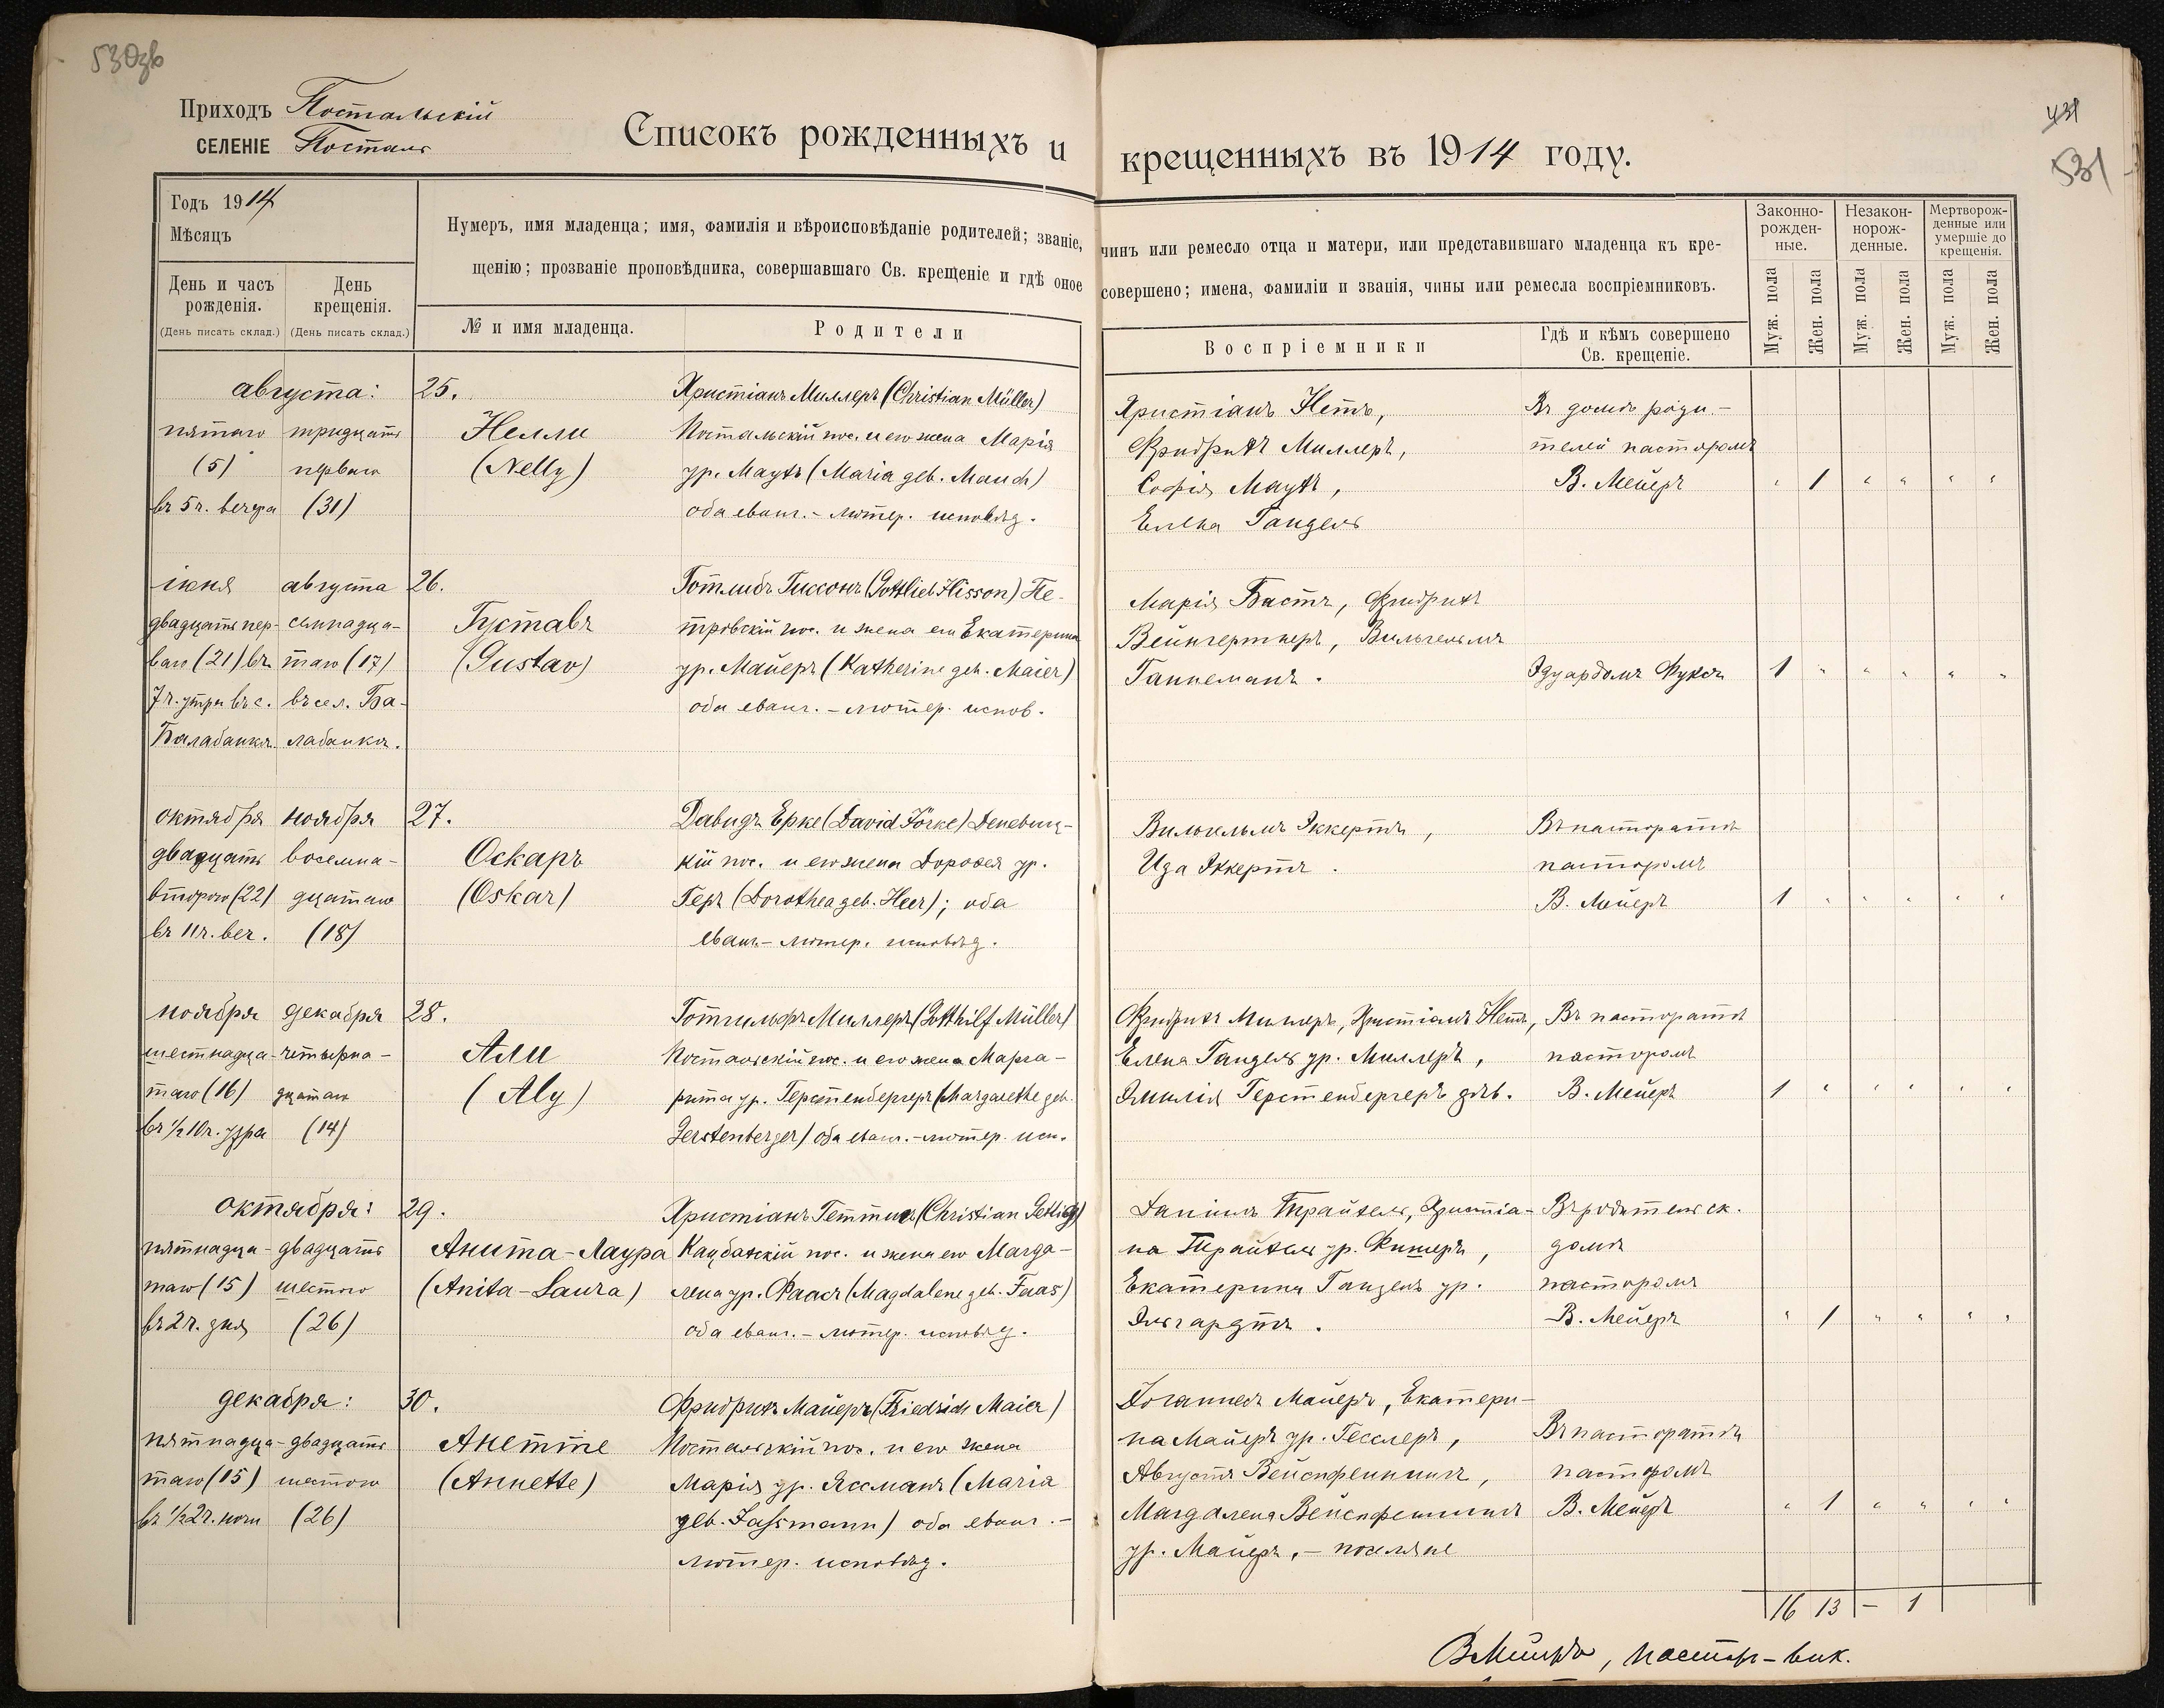 530зв
431
531
Приходъ Постальскій
СЕЛЕНІЕ Посталь
Списокъ рожденныхъ и крещенныхъ въ 1914 году.
Годъ 1914
Мѣсяцъ
День и часъ рожденія.
(День писать склад.)
День крещенія.
(День писать склад.)
Нумеръ, имя младенца; имя, фамилія и вѣроисповѣданіе родителей; званіе, чинъ или ремесло отца и матери, или представившаго младенца къ кре-
щенію; прозваніе проповѣдника, совершавшаго Св. крещеніе и гдѣ оное совершено; имена, фамиліи и званія, чины или ремесла воспріемниковъ.
№ и имя младенца.
Родители
Воспріемники
Гдѣ и кѣмъ совершено
Св. крещеніе.
Законно-
рожден-
ные.
Незакон-
норож-
денные.
Мертворож-
денные или
умершіе до
крещенія.
Муж. пола
Жен. пола
Муж. пола
Жен. пола
Муж. пола
Жен. пола
августа:
пятаго
(5)
въ 5 ч. вечера
тридцать
перваго
(31)
25.
Нелли
(Nelly)
Христіанъ Миллеръ (Christian Müller)
Постальскій пос. и его жена Марія
ур. Маухъ (Maria geb. Mauch)
оба еванг.-лютер. исповѣд.
Христіанъ Нетъ,
Фридрихъ Миллеръ,
Софія Маухъ,
Елена Гандель
Въ домѣ роди-
телей пасторомъ
В. Мейеръ
" 1 " " " "
іюня
двадцать пер-
ваго (21) въ
7 ч. утра въ с.
Балабанка.
августа
семнадца-
таго (17)
въ сел. Ба-
лабанкѣ.
26.
Густавъ
(Gustav)
Готлибъ Гиссонъ (Gottlieb Hisson) Пе-
тровскій пос. и жена его Екатерина
ур. Майеръ (Katherine geb. Maier)
оба еванг.-лютер. испов.
Марія Бастъ, Фридрихъ
Вейнгертнеръ, Вильгельмъ
Ганнеманъ.
Эдуардомъ Фуксъ
1 " " " " "
октября
двадцать
второго (22)
въ 11 ч. веч.
ноября
восемна-
дцатаго
(18)
27.
Оскаръ
(Oskar)
Давидъ Ерке (David Jörke) Деневиц-
кій пос. и его жена Доротея ур.
Геръ (Dorothea geb. Heer); оба
еванг.-лютер. исповѣд.
Вильгельмъ Эккертъ,
Ида Эккертъ.
Въ пасторатѣ
пасторомъ
В. Мейеръ
1 " " " " "
ноября
шестнадца-
таго (16)
въ ½10 ч. утра
декабря
четырна-
дцатаго
(14)
28.
Али
(Aly)
Готгильфъ Миллеръ (Gotthilf Müller)
Постальскій пос. и его жена Марга-
рита ур. Герстенбергеръ (Margarethe geb.
Gerstenberger) оба еванг.-лютер. исп.
Фридрихъ Миллеръ, Христіанъ Нетъ,
Елена Гандель ур. Миллеръ,
Эмилія Герстенбергеръ дѣв.
Въ пасторатѣ
пасторомъ
В. Мейеръ
1 " " " " "
октября:
пятнадца-
таго (15)
въ 2 ч. дня
двадцать
шестого
(26)
29.
Анита-Лаура
(Anita-Laura)
Христіанъ Геттигъ (Christian Gettig)
Кацбахскій пос. и жена его Магда-
лена ур. Фаасъ (Magdalene geb. Faas)
оба еванг.-лютер. исповѣд.
Даніилъ Трайхель, Христіа-
на Трайхель ур. Фишеръ,
Екатерина Ганцель ур.
Эльгардтъ.
Въ родительск.
домѣ
пасторомъ
В. Мейеръ
" 1 " " " "
декабря:
пятнадца-
таго (15)
въ ½2 ч. ночи
двадцать
шестого
(26)
30.
Анетте
(Annette)
Фридрихъ Майеръ (Friedrich Maier)
Постальскій пос. и его жена
Марія ур. Яссманъ (Maria
geb. Jassmann) оба еванг.-
лютер. исповѣд.
Іоганнесъ Майеръ, Екатери-
на Майеръ ур. Гесслеръ,
Августъ Вейспфеннингъ,
Магдалена Вейспфеннингъ
ур. Майеръ, - поселяне
Въ пасторатѣ
пасторомъ
В. Мейеръ
" 1 " " " "
16 13 - 1
В Мейеръ, пасторъ-вик.